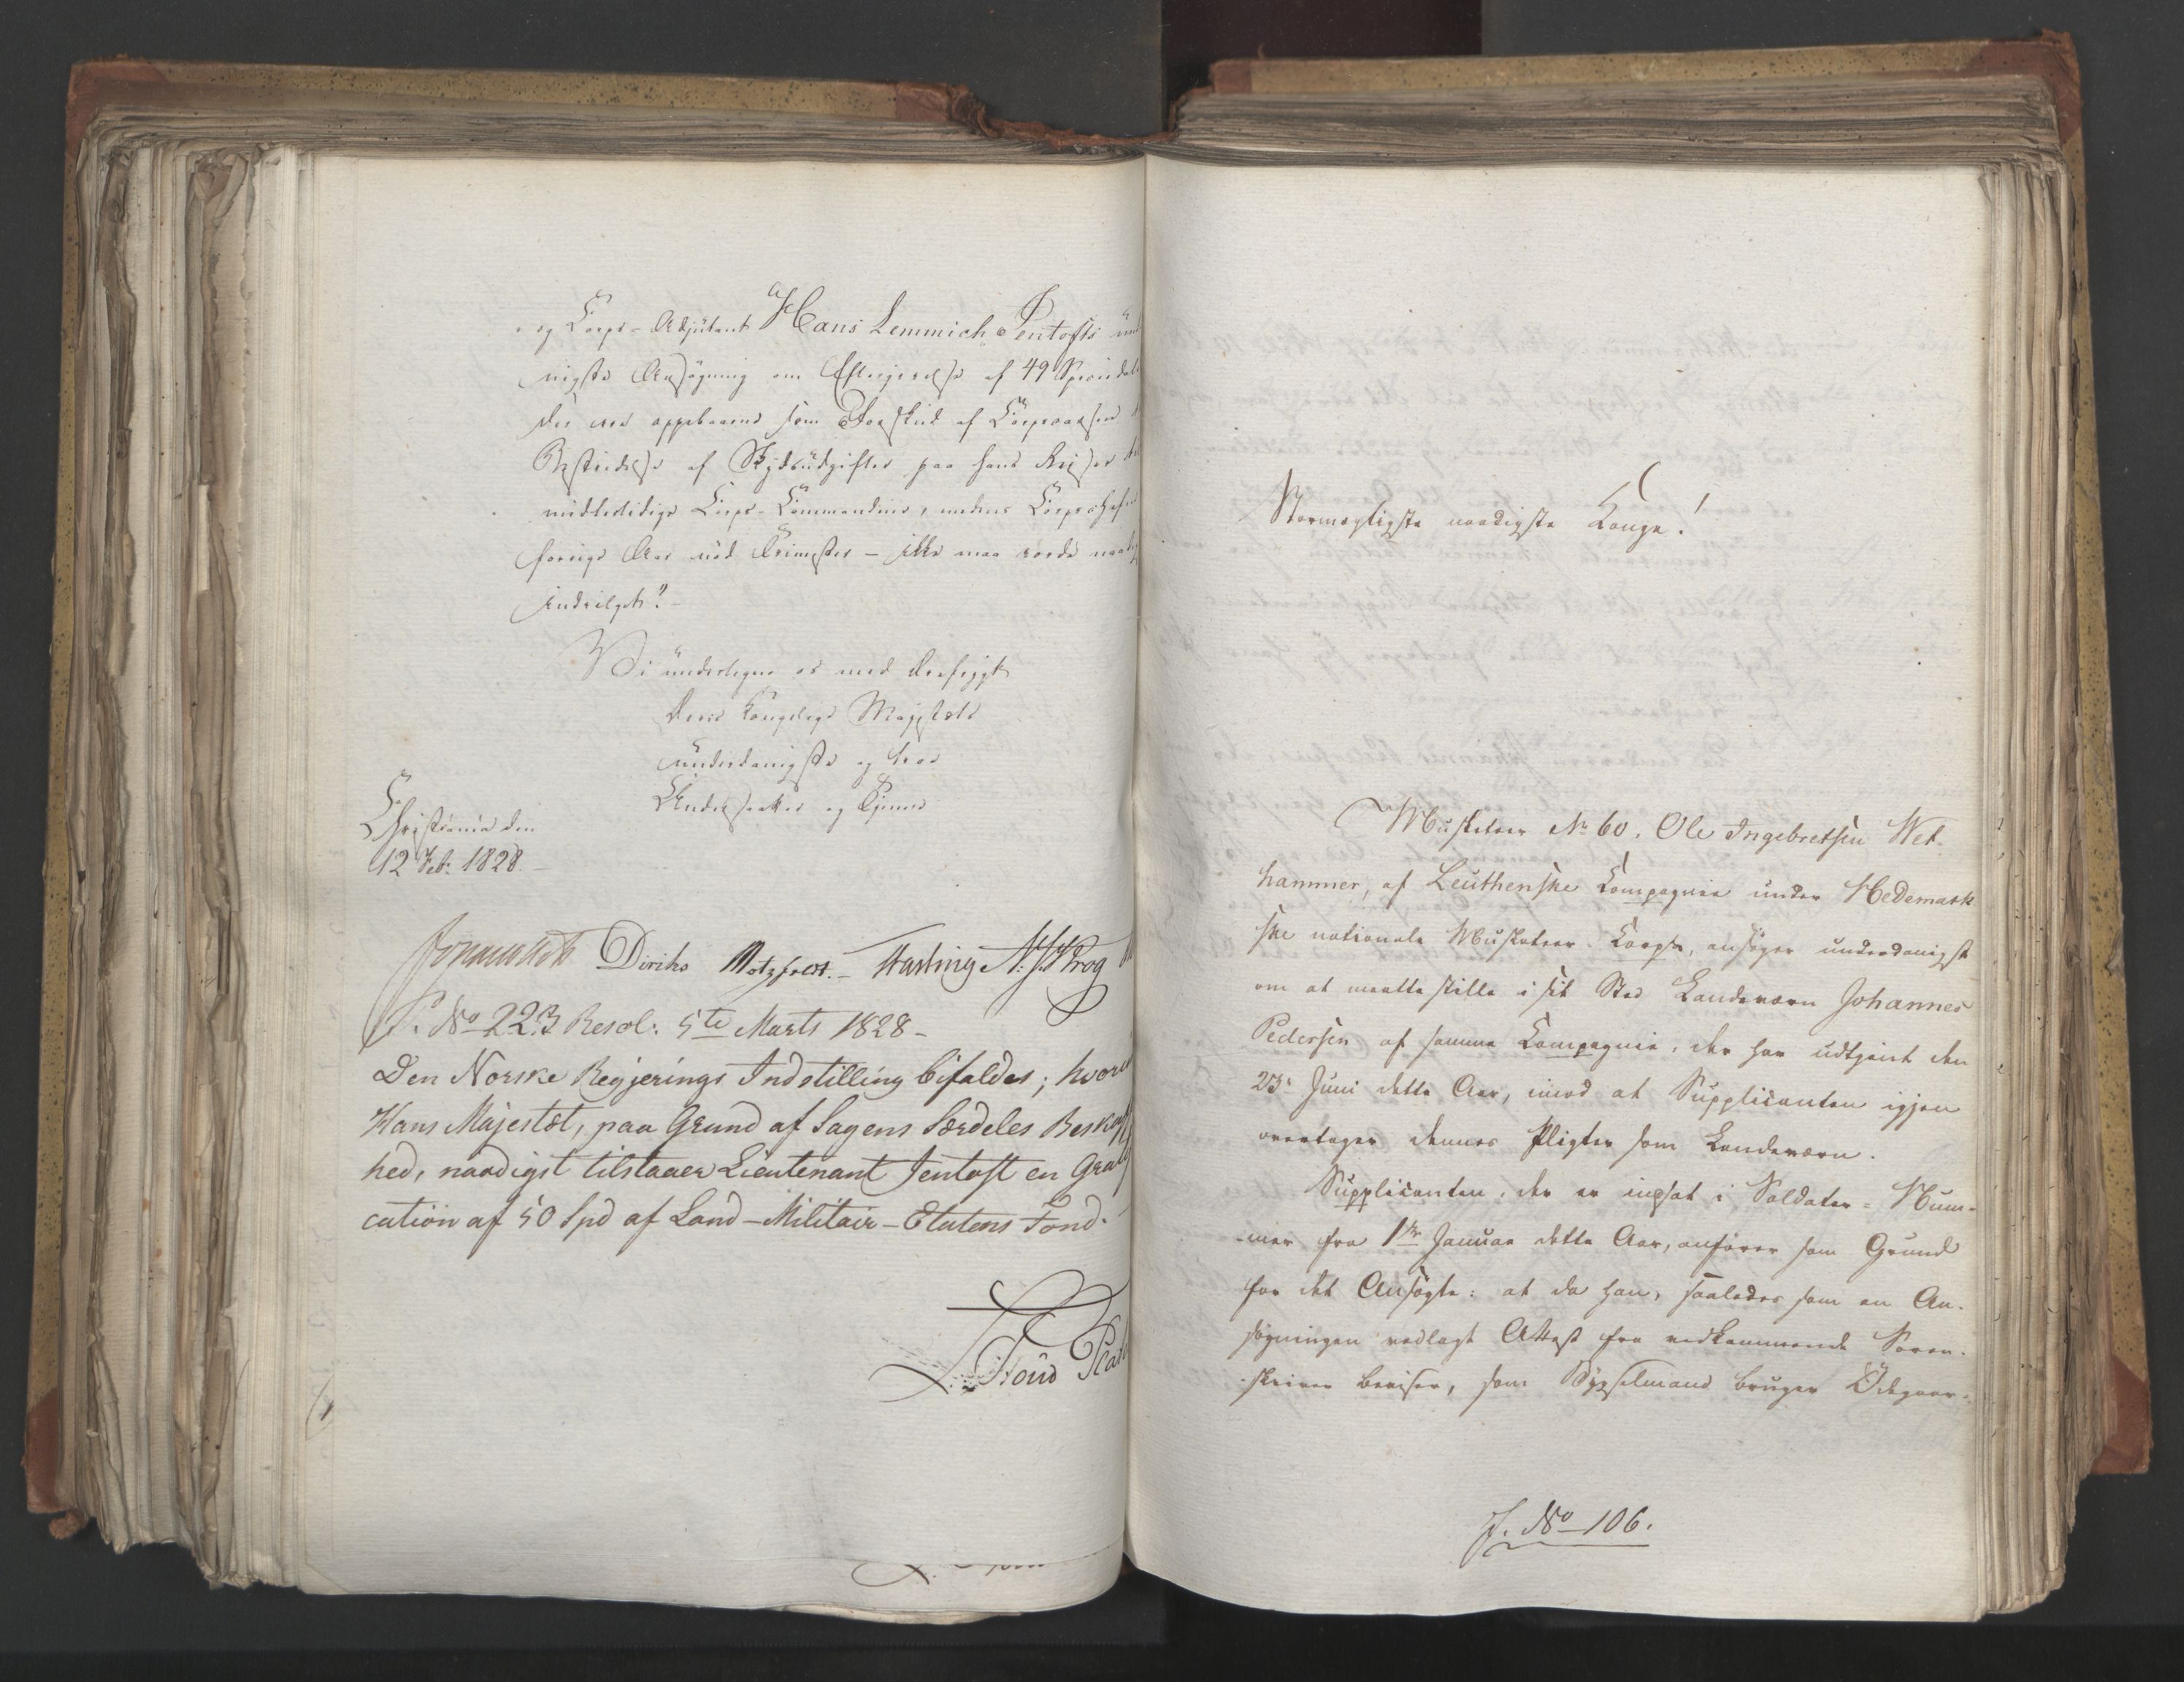 og Corps-Adjutant Hans Lemmich Jentofts und
nigste Ansøgning om Eftergivelse af 49 Speciedal
der ere oppebaarne som Forskud af Corpscassen
Bestridelse af Skydsudgifter paa hans Reiser
midlertidige Corps-Commandeur, medens Corpschefen
forrige Aar
indvilget?
Vi undertegne os med Ærefrygt
Deres Kongelige Majestæts
underdanigste og troe
Undersaatter og Tjenere
Christiania den
12 Feb: 1828.
Diriks Motzfeldt. Fasting N: J: Krog
S. No 223 Resol: 5te Marts 1828-
Den Norske Regjerings Indstilling bifaldes; hvor
Hans Majestæt, paa Grund af Sagens Særdeles Beskaff
hed, naadigst tilstaaer Lieutenant Jentoft en Grati
cation af 50 Spd af Land-Militair-Etatens Fond.
Stormægtigste naadigste Konge!
Musketeer No 60, Ole Ingebretsen Wet-
hammer, af Leuthenske Compagnie under Hedemark
ske nationale Musketeer-Corps, ansøger underdanigst
om at maatte stille i sit Sted Landeværn Johannes
Pedersen af samme Compagnie, der har udtjent den
23de Juni dette Aar, imod at Supplicanten igjen
overtager dennes Pligter som Landeværn.
Supplicanten, der er indsat i Soldater-Num-
mer fra 1ste Januar dette Aar, anfører som Grund
for det Ansøgte: at da han, saaledes som en An-
søgningen vedlagt Attest fra vedkommende Soren-
skriver beviser, som Sysselmand bruger Ödegaar-
J. No 106.